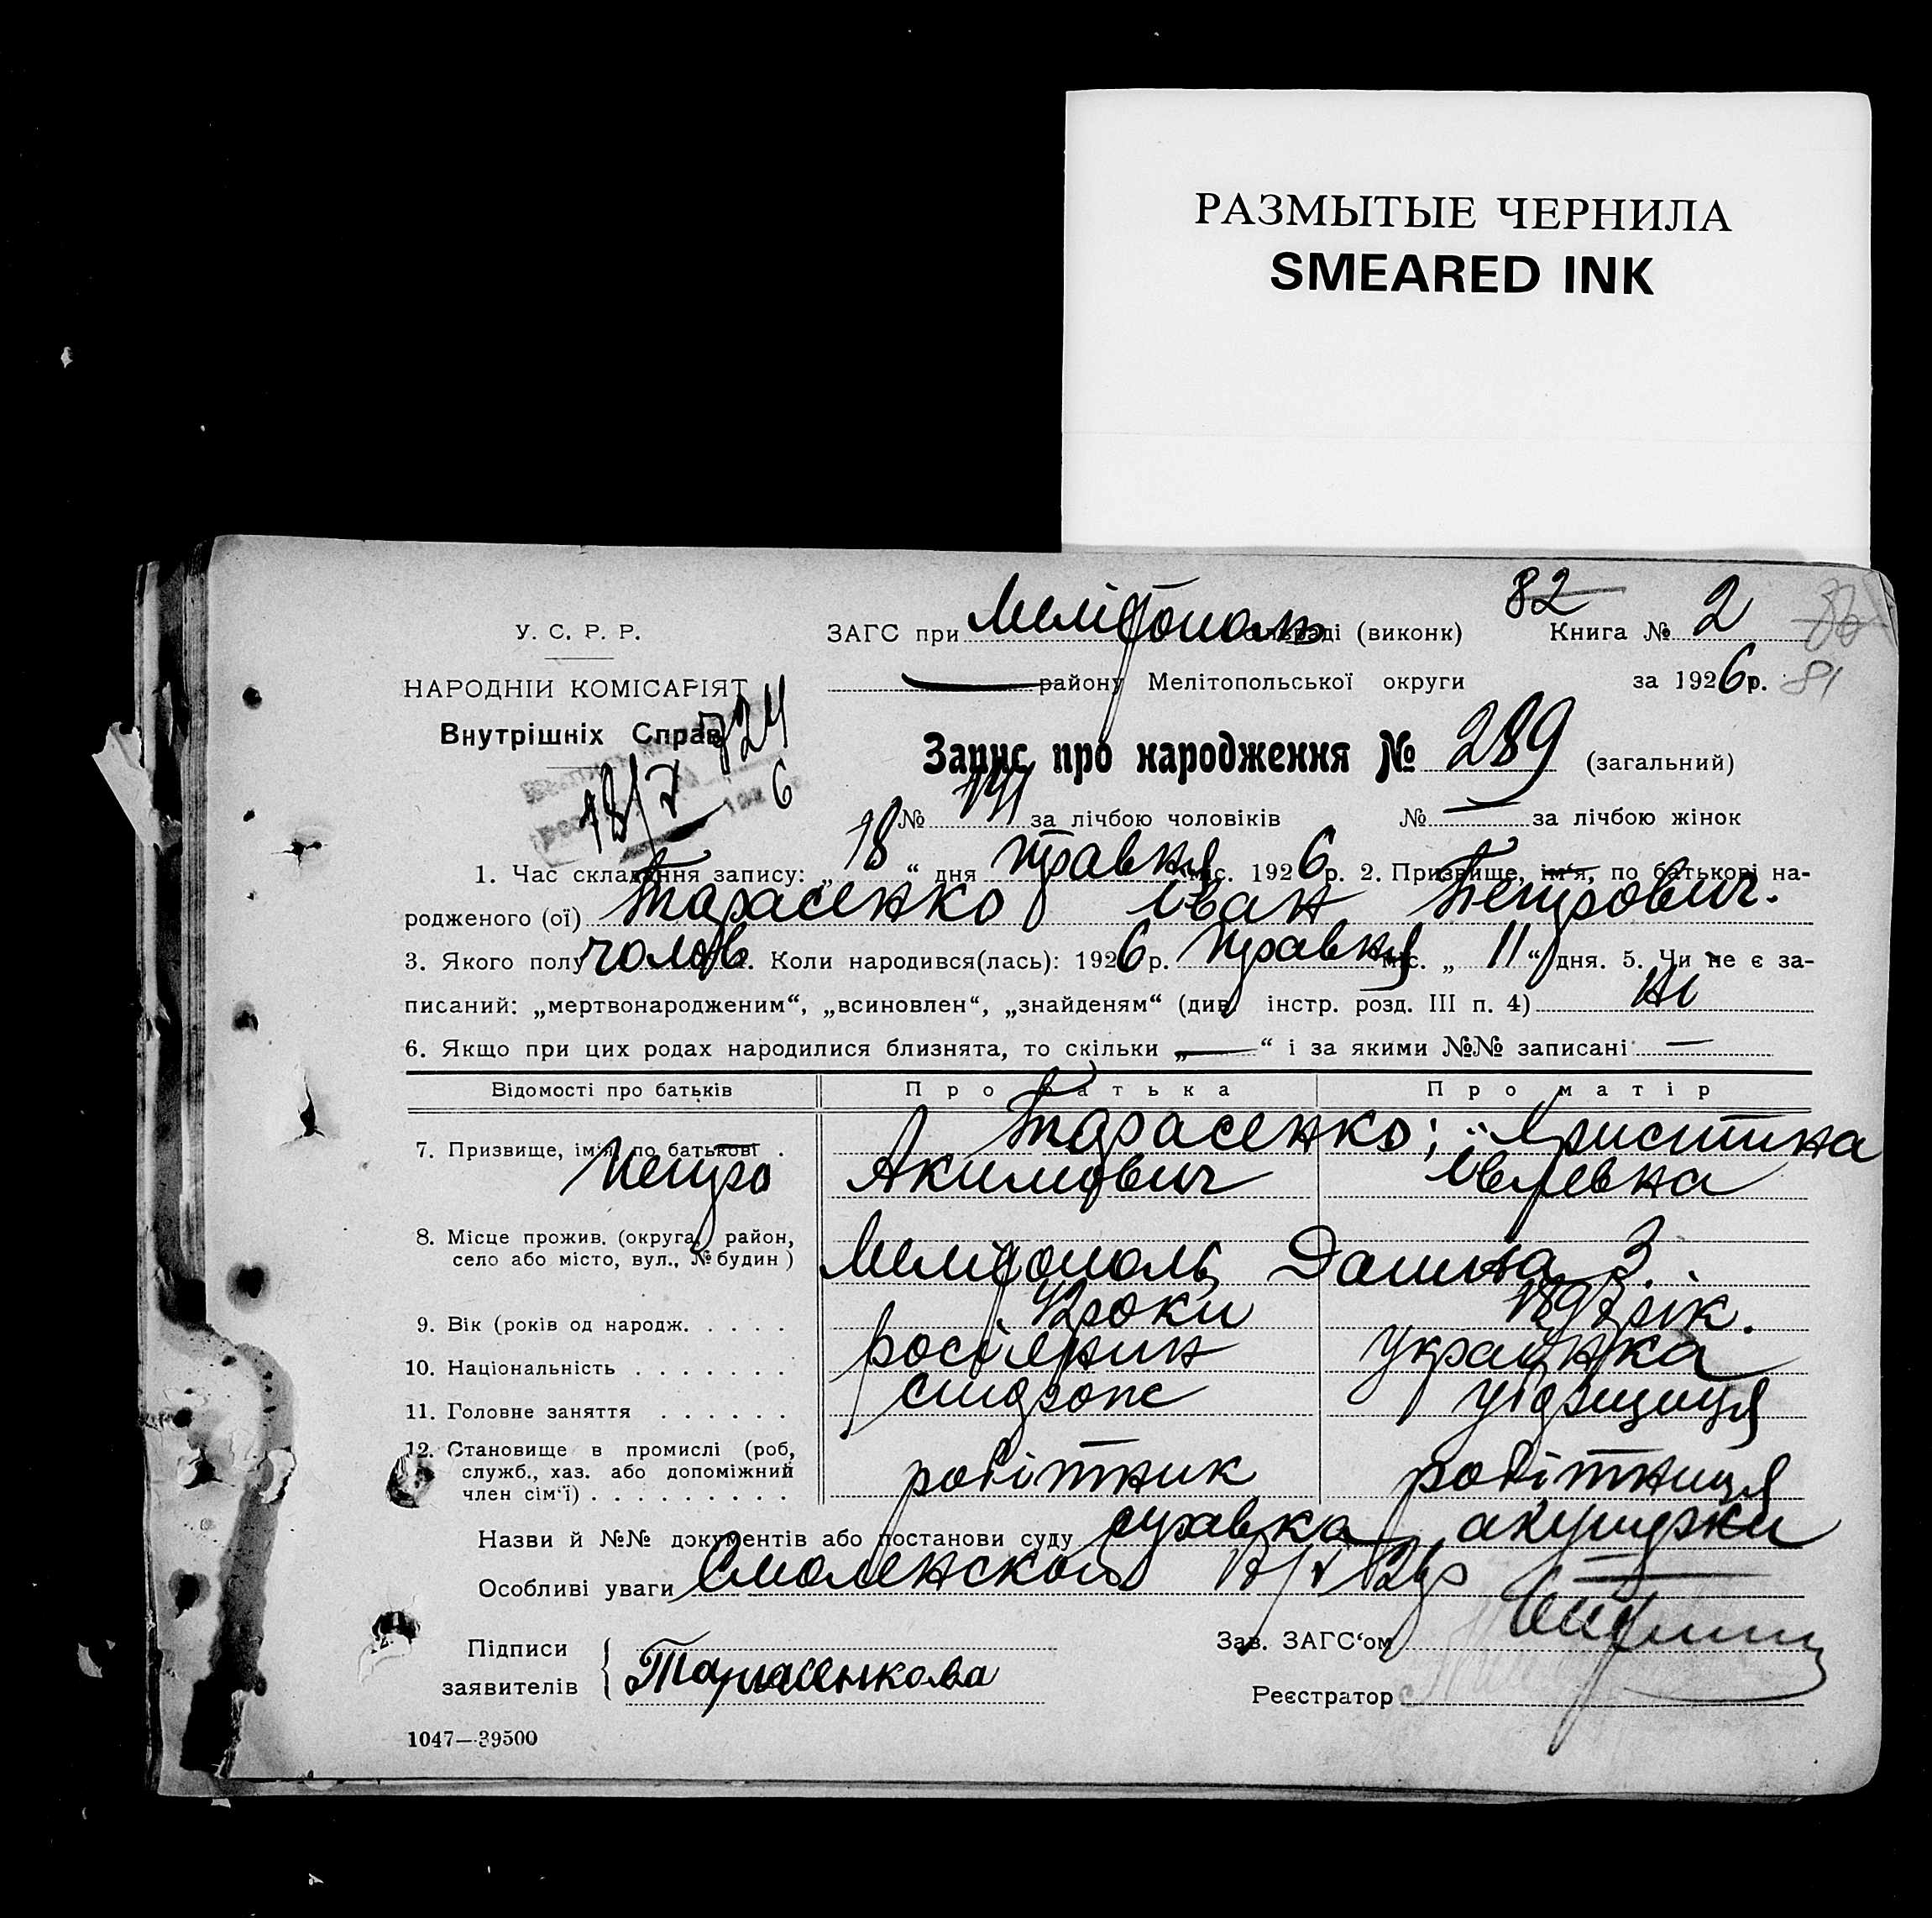 РАЗМЫТЫЕ ЧЕРНИЛА
SMEARED INK
82
У. С. Р. Р.
ЗАГС при Мелітополь сільраді (виконк) Книга № 2
НАРОДНІЙ КОМІСАРІЯТ
району Мелітопольської округи за 1926 р. 81
Внутрішніх Справ
724
18/7
6
Запис про народження № 289 (загальний)
№ 141 за лічбою чоловіків № — за лічбою жінок
1. Час складання запису: „18“ дня травня міс. 1926 р. 2. Призвище, ім'я, по батькові на-
родженого (ої) Тарасенко Іван Петрович.
3. Якого полу чолов 4. Коли народився(лась): 1926 р. травня міс. „11“ дня. 5. Чи не є за-
писаний: „мертвонародженим“, „всиновлен“, „знайденям“ (див. інстр. розд. III п. 4) ні
6. Якщо при цих родах народилися близнята, то скільки „—“ і за якими №№ записані —
Відомості про батьків Про батька Про матір
Тарасенко; Христина
7. Призвище, ім'я, по батькові .
Петро Акимович
8. Місце прожив. (округа, район,
село або місто, вул., № будин) Мелітополь, 3.
9. Вік (років од народж. . . . . 42 роки 1897 рік.
10. Національність . . . . . . . росіянин українка
11. Головне заняття . . . . . . сторож
12. Становище в промислі (роб,
служб., хаз. або допоміжний
член сім'ї) . . . . . . . . . робітник робітниця
Назви й №№ документів або постанови суду справка акушерки
Особливі уваги Смоленской
Підписи
заявителів Тарасенкова
Зав. ЗАГС'ом
Реєстратор
1047—39500